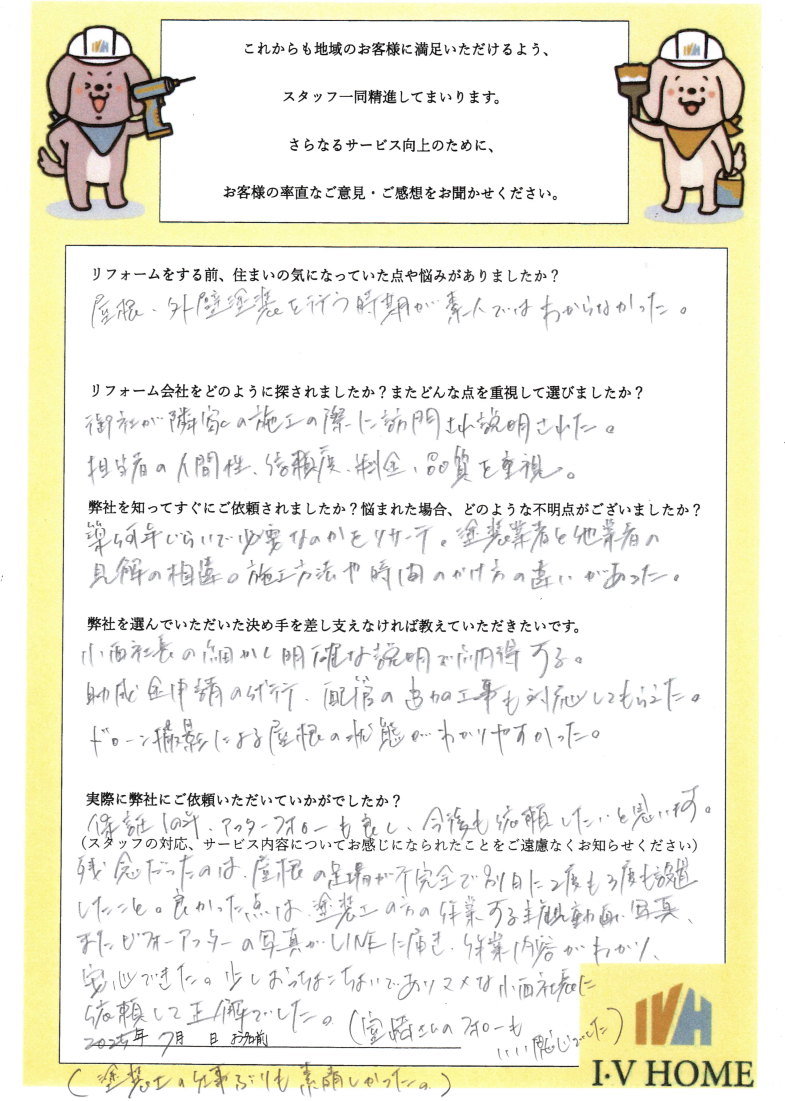 IVH
IVH
これからも地域のお客様に満足いただけるよう、
スタッフ一同精進してまいります。
さらなるサービス向上のために、
お客様の率直なご意見・ご感想をお聞かせください。
リフォームをする前、住まいの気になっていた点や悩みがありましたか？
屋根、外壁塗装を行う時期が素人ではわからなかった。
リフォーム会社をどのように探されましたか？またどんな点を重視して選びましたか？
御社が隣家の施工の際に訪問され説明された。
担当者の人間性、信頼度、料金、品質を重視。
弊社を知ってすぐにご依頼されましたか？悩まれた場合、どのような不明点がございましたか？
築何年くらいで必要なのかをリサーチ。塗装業者と他業者の
見解の相違。施工方法や時間のかけ方の違いがあった。
弊社を選んでいただいた決め手を差し支えなければ教えていただきたいです。
小西社長の細かし明確な説明で納得する。
助成金申請の代行、配管の追加工事も対応してもらえた。
ドローン撮影による屋根の状態がわかりやすかった。
実際に弊社にご依頼いただいていかがでしたか？
保証10年、アフターフォローも良し、今後も依頼したいと思います。
（スタッフの対応、サービス内容についてお感じになられたことをご遠慮なくお知らせください）
残念だったのは、屋根の足場が不完全で別日に2度も3度も設置
したこと。良かった点は、塗装工の方の作業する動画、写真、
またビフォーアフターの写真がLINEに届き、作業内容がわかり、
安心できた。少しおっちょこちょいでありマメな小西社長に
依頼して正解でした。（室崎さんのフォローも
いい感じでした）
2025年 7月 日 お名前
（塗装士の仕事ぶりも素晴しかったの。）
IVH
I・V HOME